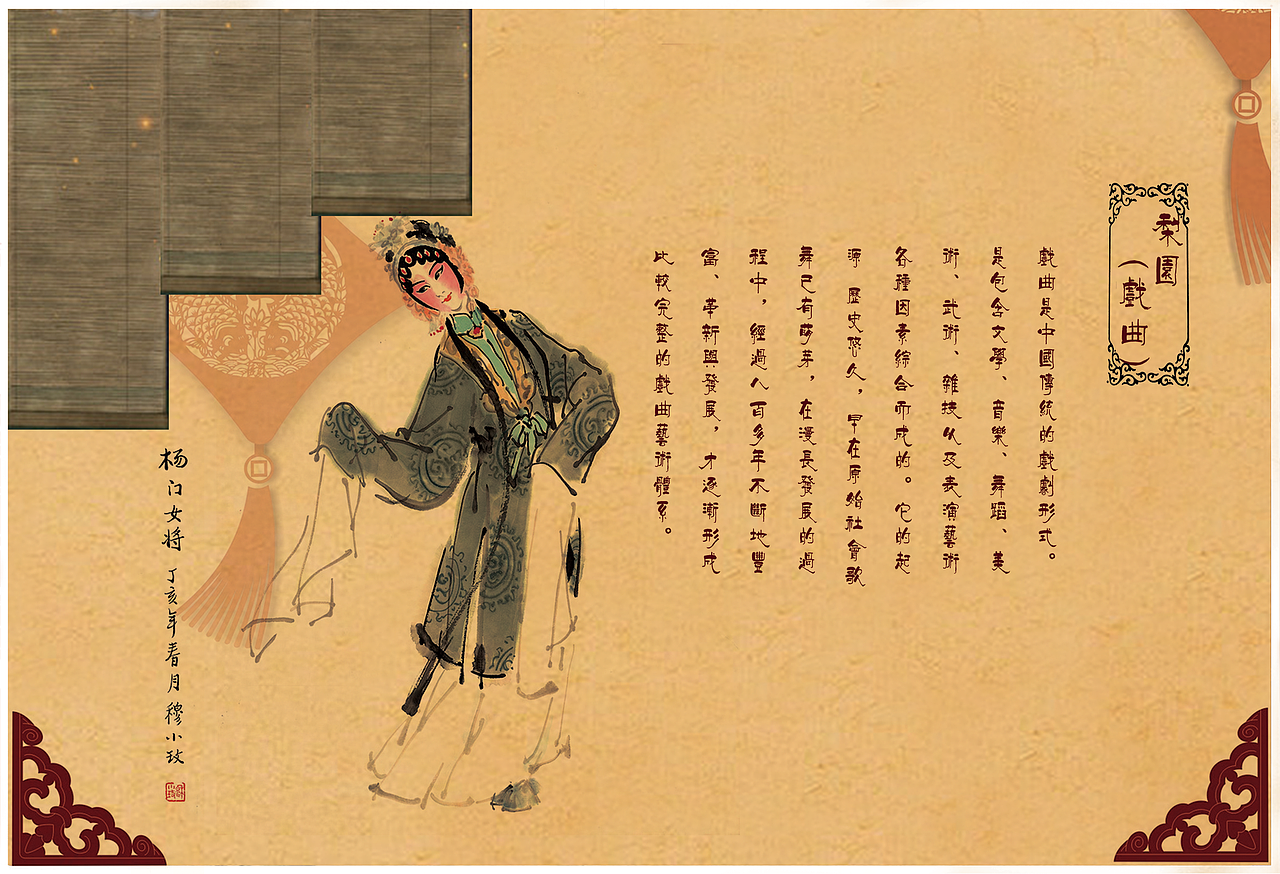 梨園
（戲曲）
戲曲是中國傳統的戲劇形式。
是包含文學、音樂、舞蹈、美
術、武術、雜技以及表演藝術
各種因素綜合而成的。它的起
源 歷史悠久，早在原始社會歌
舞已有萌芽，在漫長發展的過
程中，經過八百多年不斷地豐
富、革新與發展，才逐漸形成
比較完整的戲曲藝術體系。
杨门女将 丁亥年春月 穆小玫